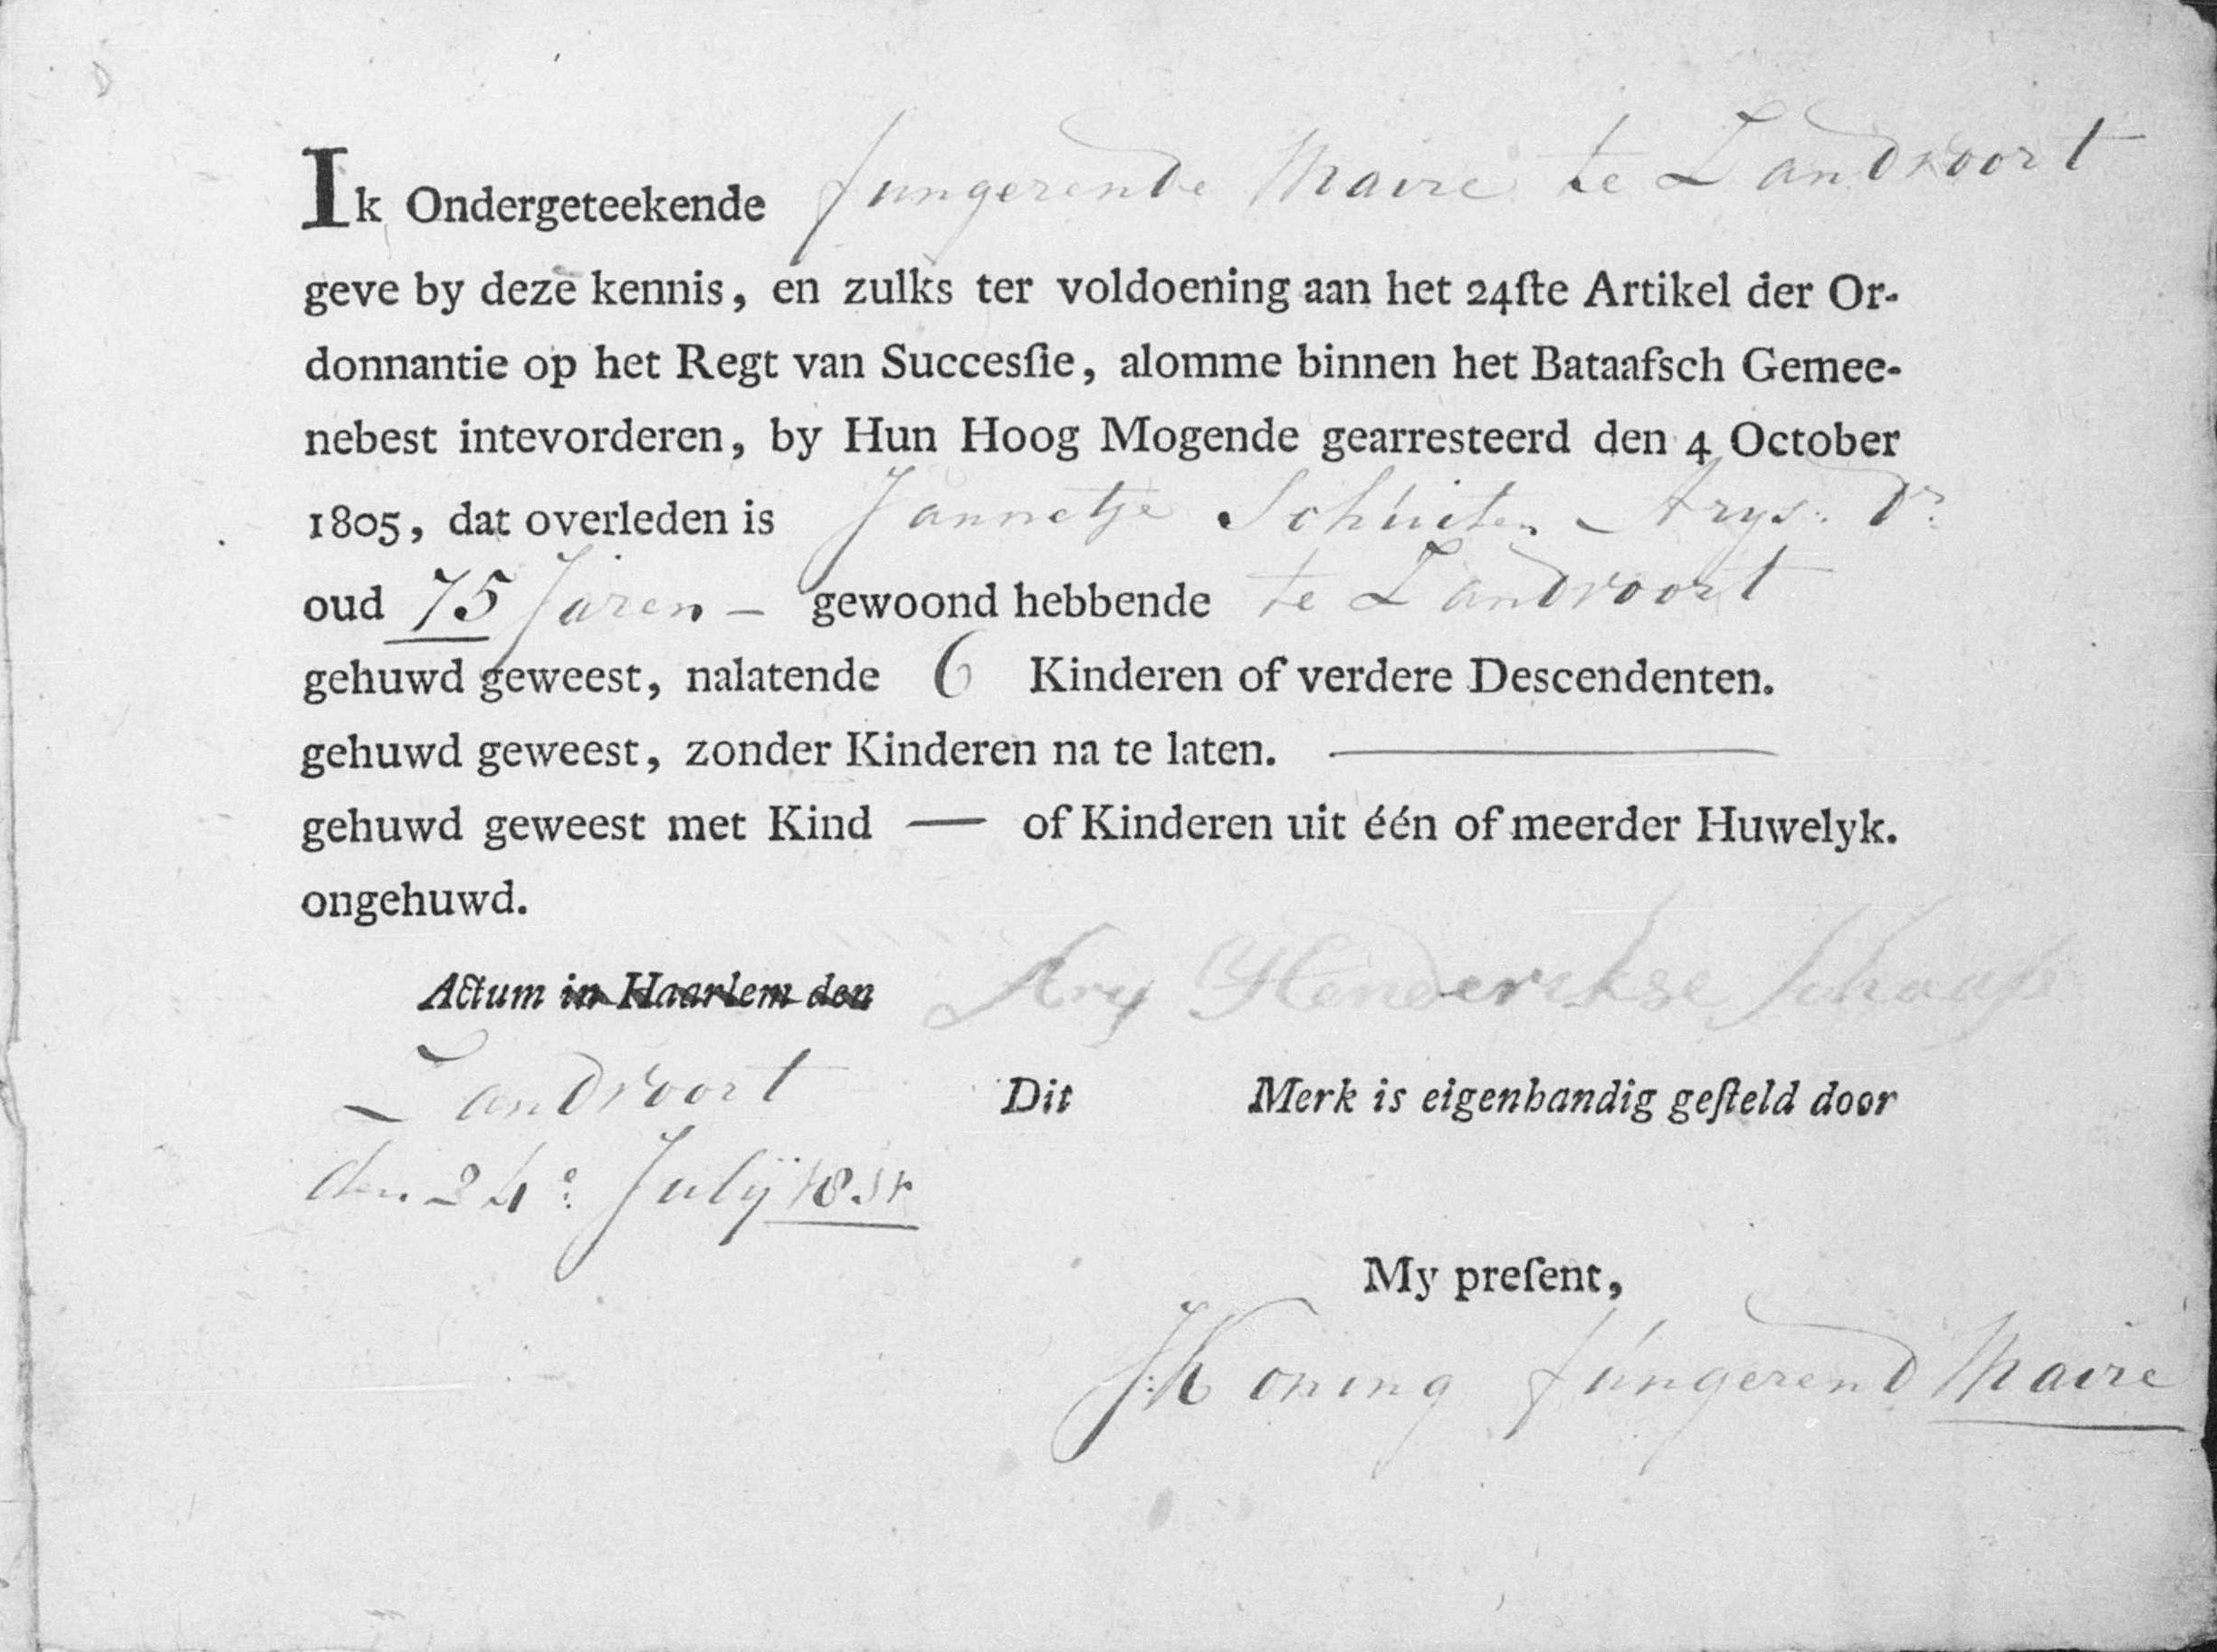 Ik Ondergeteekende fungerende Maire te Zandvoort
geve by deze kennis, en zulks ter voldoening aan het 24ſte Artikel der Or-
donnantie op het Regt van Succesſie, alomme binnen het Bataafsch Gemee-
nebest intevorderen, by Hun Hoog Mogende gearresteerd den 4 October
1805, dat overleden is Jannetje Schuiten Arys: Dr:
oud 75 Jaren - gewoond hebbende te Zandvoort
gehuwd geweest, nalatende 6 Kinderen of verdere Descendenten.
gehuwd geweest, zonder Kinderen na te laten.
gehuwd geweest met Kind — of Kinderen uit één of meerder Huwelyk.
ongehuwd.
Actum in Haarlem den Ary Henderikse Schaap
Zandvoort
Dit Merk is eigenhandig geſteld door
den 24e: Julij 1811
My preſent,
J:Koning fungerend Maire